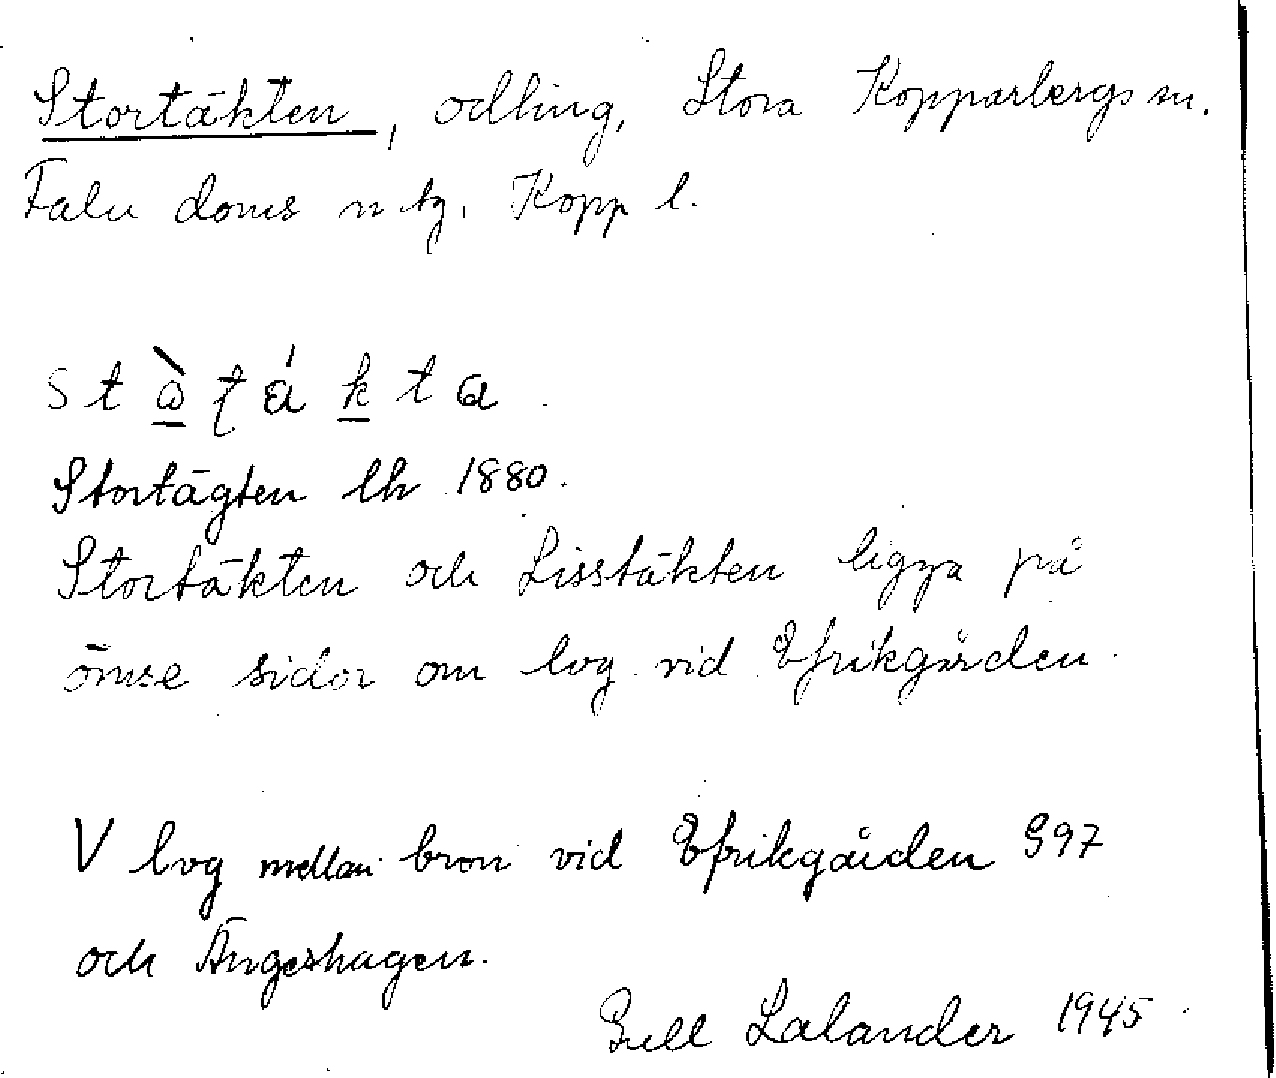 Stortäkten, odling, Stora Kopparbergs sn.
Falu doms n tg. Kopp l.
Stortägten lh 1880.
Stortäkten och Lisstäkten ligga på
ömse sidor om lvg vid Efrikgården.
V lvg mellan bron vid Efrikgården 997
och Ängeshagen.
Gull Lalander 1945